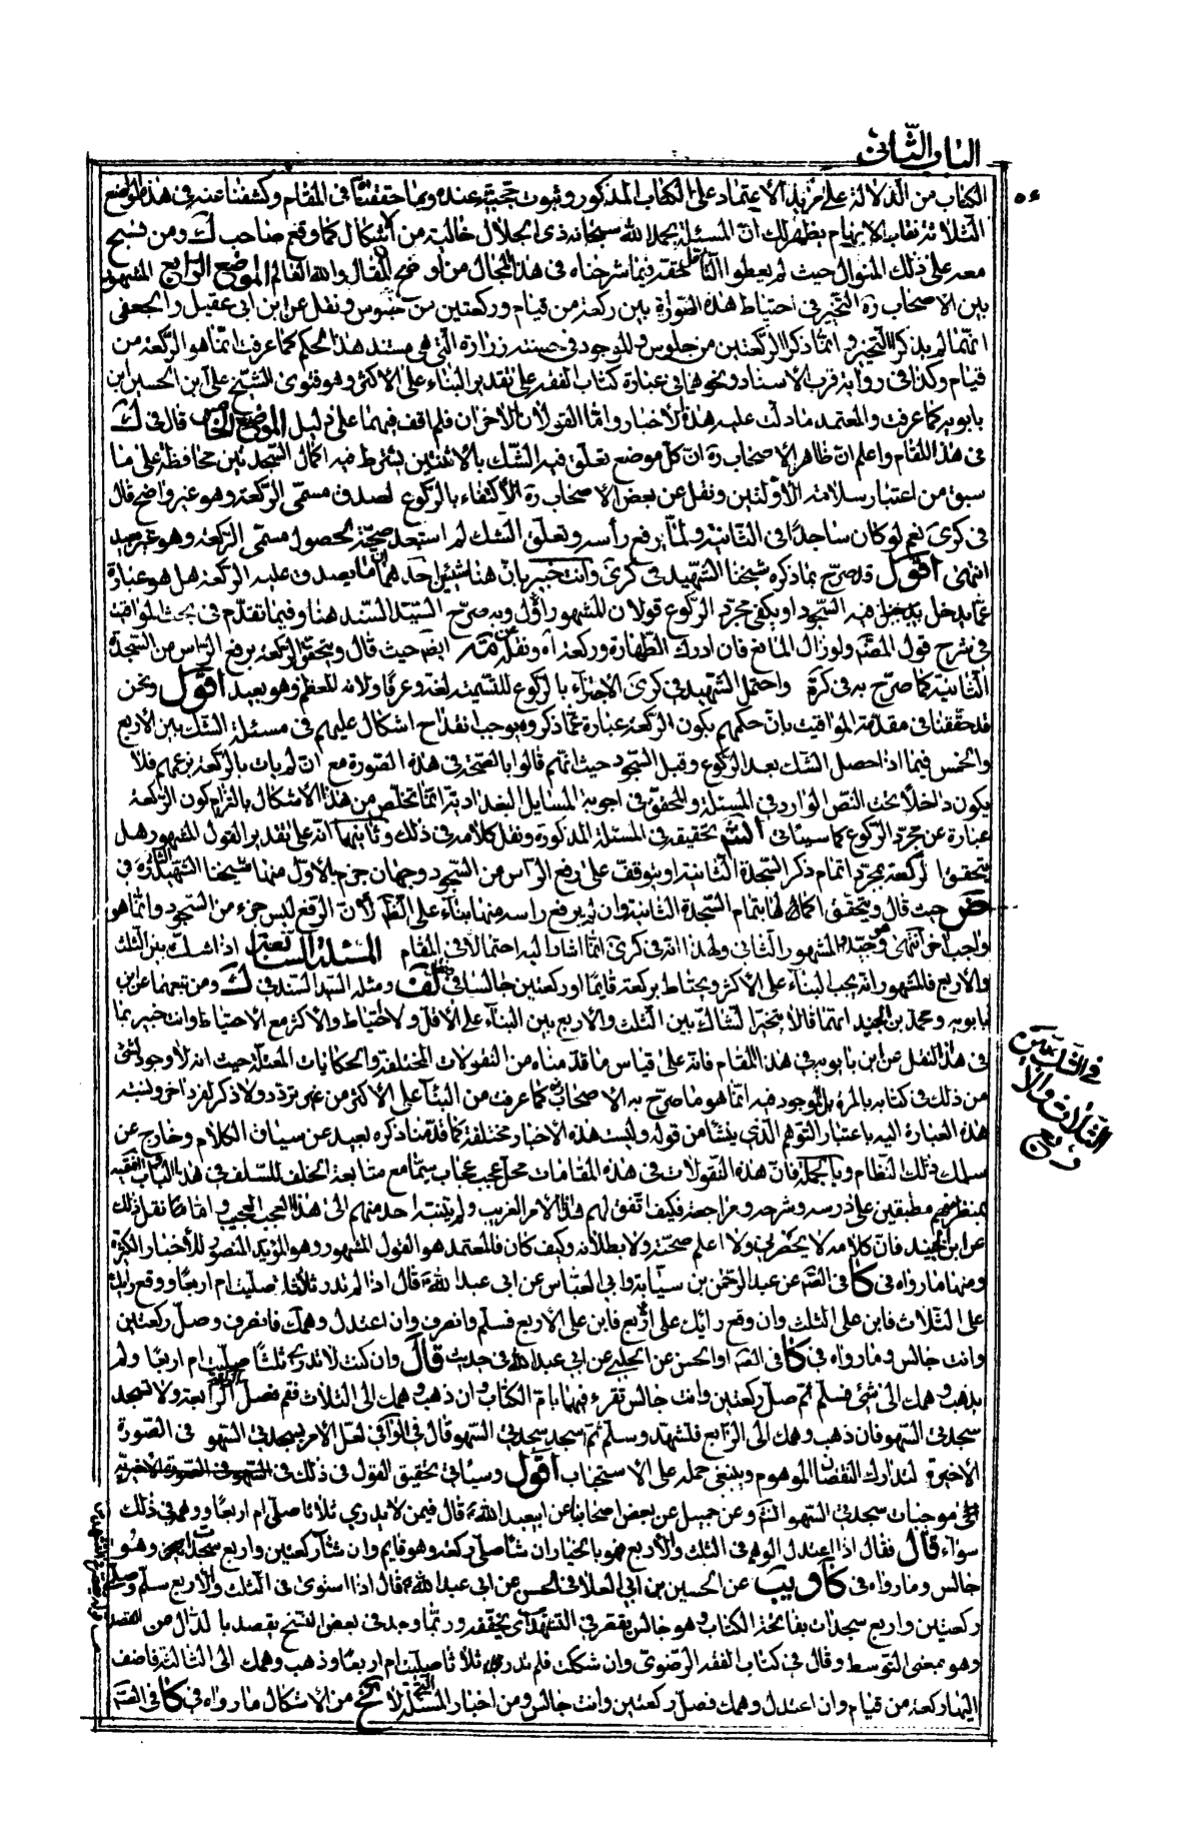 الباب الثاني
الكتاب من الدلالة على مزيد الاعتماد على الكتاب المذكور وثبوت حجيته عنده وبما حققناه في المقام وكشفنا عنه في هذه المواضع
الثلاثة نقاب الابهام يظهر لك ان المسئلة بحمد الله سبحانه ذي الجلال خالية من الاشكال كما وقع صاحب ك ومن نسج
معه على ذلك المنوال حيث لم يعطوا التأمل حقه فيما شرحناه في هذا المجال من اوضح المقال والله العالم الموضع الرابع المشهور
بين الاصحاب ره التخيير في احتياط هذه الصورة بين ركعة من قيام وركعتين من جلوس ونقل عن ابن ابي عقيل والجعفي
انهما لم يذكرا التخيير وانما ذكرا الركعتين من جلوس والموجود في حسنة زرارة التي هي مستند هذا الحكم كما عرفت انما هو الركعة من
قيام وكذا في رواية قرب الاسناد ونحوهما في عبارة كتاب الفقه على تقدير البناء على الاكثر وهو فتوى الشيخ علي ابن الحسين ابن
بابويه كما عرفت والمعتمد ما دلت عليه هذه الاخبار واما القولان الاخران فلم اقف فيهما على دليل الموضع الخامس قال في ك
في هذا المقام واعلم ان ظاهر الاصحاب ره ان كل موضع تعلق فيه الشك بالاثنتين يشترط فيه اكمال السجدتين محافظة على ما
سبق من اعتبار سلامة الاولتين ونقل عن بعض الاصحاب ره الاكتفاء بالركوع لصدق مسمى الركعة وهو غير واضح قال
في كرى نعم لو كان ساجدا في الثانية ولما يرفع رأسه وتعلق الشك لم استبعد صحته لحصول مسمى الركعة وهو غير بعيد
انتهى اقول قد صرح بما ذكره شيخنا الشهيد في كرى وانت خبير بان هنا شيئين احدهما ان ما يصدق عليه الركعة هل هو عبارة
عما يدخل فيه السجود او يكفي مجرد الركوع قولان المشهور الاول وبه صرح السيد السند هنا وفيما تقدم في بحث المواقيت
في شرح قول المصنف ولو زال المانع فان ادرك الطهارة وركعة اه ونقله ايضا حيث قال ويتحقق الركعة برفع الراس من السجدة
الثانية كما صرح به في كرة واحتمل الشهيد في كرى الاجتزاء بالركوع للتسمية لغة وعرفا ولانه المعظم وهو بعيد اقول ونحن
قد حققنا في مقدمة المواقيت بان حكمهم بكون الركعة عبارة عما ذكروه يوجب انقداح اشكال عليهم في مسئلة الشك بين الاربع
والخمس فيما اذا حصل الشك بعد الركوع وقبل السجود حيث انهم قالوا بالصحة في هذه الصورة مع ان لم يات بالركعة بزعمهم فلا
يكون داخلا تحت النص الوارد في المسئلة والمحقق في اجوبة المسايل البغدادية انما تخلص من هذا الاشكال بالتزام كون الركعة
عبارة عن مجرد الركوع كما سيأتي تحقيقه في المسئلة المذكورة ونقل كلامه في ذلك وثانيهما انه على تقدير القول المشهور هل
يتحقق الركعة بمجرد اتمام ذكر السجدة الثانية او يتوقف على رفع الراس من السجود وجهان جزم بالاول منهما شيخنا الشهيد الثاني ره في
ض حيث قال ويتحقق اكمالها بتمام السجدة الثانية وان لم يرفع راسه منها بناء على لأن الرفع ليس جزء من السجود وانما هو
واجب اخر انتهى وهو جيد والمشهور الثاني ولهذا انه في كرى انما اشار اليه احتمالا في المقام المسئلة السابعة اذا شك بين الثلث
والاربع فالمشهور انه يجب البناء على الاكثر ويحتاط بركعة قائما او ركعتين جالسا في لف ومثله السيد السند في ك ومن تبعهما عن ابن
بابويه ومحمد بن الجنيد انهما قالا يتخير الشاك بين الثلث والاربع بين البناء على الاقل ولا احتياط والاكثر مع الاحتياط وانت خبير بما
في هذا النقل عن ابن بابويه في هذا المقام فانه على قياس ما قدمناه من النقولات المختلفة والحكايات المعتلة حيث انه لا وجود لشئ
من ذلك في كتابه بالمرة بل الموجود فيه انما هو ما صرح به الاصحاب كما عرفت من البناء على الاكثر من غير تردد ولا ذكر لفرد اخر ونسبة
هذه العبارة اليه باعتبار التوهم الذي ينشأ من قوله وليست هذه الاخبار مختلفة كما قدمنا ذكره بعيد عن سياق الكلام وخارج عن
سلك ذلك النظام وبالجملة فان هذه النقولات في هذه المقامات محل عجب عجاب سيما مع متابعة الخلف للسلف في هذا الباب والفقيه
بمنظر منهم مطبقين على درسه وشرحه ومراجعته فكيف اتفق لهم هذا الامر الغريب ولم يتنبه احد منهم الى هذا العجب العجيب واما ما نقل ذلك
عن ابن الجنيد فان كلامه لا يحضرني ولا اعلم صحته ولا بطلانه وكيف كان فالمعتمد هو القول المشهور وهو المؤيد المنصور للأخبار الكثيرة
ومنها ما رواه في كا في عن عبد الرحمن بن سيابة وابي العباس عن ابي عبد الله قال اذا لم تدر ثلاثا صليت ام اربعا ووقع رايك
على الثلاث فابن على الثلث وان وقع رايك على الاربع فابن على الاربع فسلم وانصرف وان اعتدل وهمك فانصرف وصل ركعتين
وانت جالس وما رواه في كا في او الحسن عن الحلبي عن ابي عبد الله في حديث قال وان كنت لا تدري ثلثا صليت ام اربعا ولم
يذهب وهمك الى شئ فسلم ثم صل ركعتين وانت جالس تقرء فيهما بام الكتاب وان ذهب وهمك الى الثلاث فقم فصل الركعة الرابعة ولا تسجد
سجدتي السهو فان ذهب وهمك الى الرابع فتشهد وسلم ثم اسجد سجدتي السهو قال في الوافي لعل الامر بسجدتي السهو في الصورة
الاخيرة لتدارك النقصان الموهوم وينبغي حمله على الاستحباب اقول وسيأتي تحقيق القول في ذلك في
موجبات سجدتي السهو وعن جميل عن بعض اصحابنا عن ابيعبد الله قال فيمن لا يدري ثلاثا صلى ام اربعا ووهمه في ذلك
سواء قال فقال اذا اعتدل الوهم في الثلث والاربع فهو بالخيار ان شاء صلى ركعة وهو قايم وان شاء ركعتين واربع سجدات وهو
جالس وما رواه في كا ويب عن الحسين بن ابي العلا في الحسن عن ابي عبد الله قال اذا استوى في الثلث والاربع سلم وصلى
ركعتين واربع سجدات بفاتحة الكتاب وهو جالس يقصر في التشهد اي يخففه وربما وجد في بعض النسخ يقصد بالدال من القصد
وهو بمعنى التوسط وقال في كتاب الفقه الرضوي وان شككت فلم تدر ثلاثا صليت ام اربعا وذهب وهمك الى الثالثة فاضف
اليها ركعة من قيام وان اعتدل وهمك فصل ركعتين وانت جالس ومن اخبار المسئلة من الاشكال ما رواه في كا في
في الشك بين
الثلاث والا
ربع